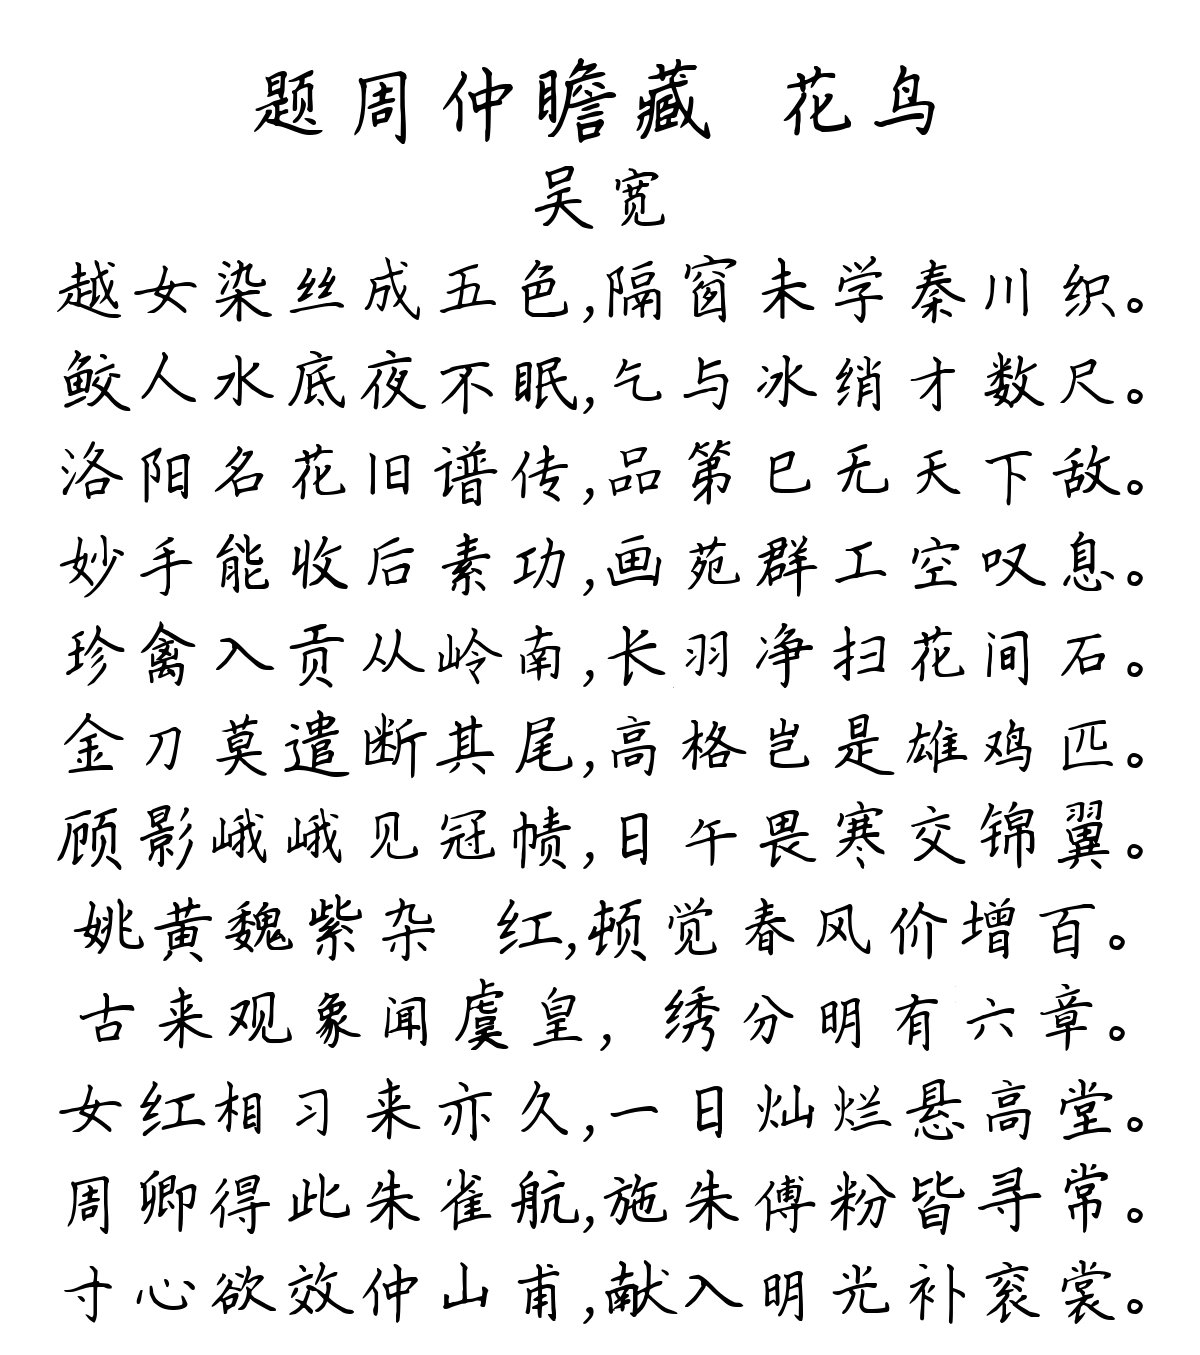 题周仲瞻藏 花鸟
吴宽
越女染丝成五色,隔窗未学秦川织。
鲛人水底夜不眠,乞与冰绡才数尺。
洛阳名花旧谱传,品第巳无天下敌。
妙手能收后素功,画苑群工空叹息。
珍禽入贡从岭南,长羽净扫花间石。
金刀莫遣断其尾,高格岂是雄鸡匹。
顾影峨峨见冠帻,日午畏寒交锦翼。
姚黄魏紫杂 红,顿觉春风价增百。
古来观象闻虞皇,绣分明有六章。
女红相习来亦久,一日灿烂悬高堂。
周卿得此朱雀航,施朱傅粉皆寻常。
寸心欲效仲山甫,献入明光补衮裳。